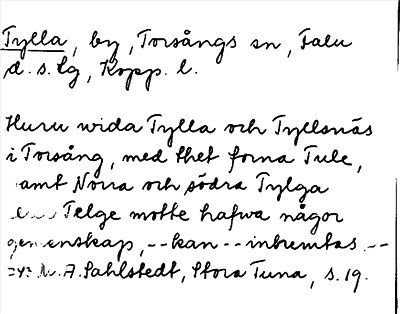 Tylla, by, Torsångs sn, Falu
d. s. lg, Kopp. l.
Huru wida Tylla och Tyllsnäs
i Torsång, med thet forna Tule,
amt Norra och södra Tylga
Telge motte hafwa någor
genenskap, -- kan -- inhemtas --
N. A. Sahlstedt, Stora Tuna, s. 19.